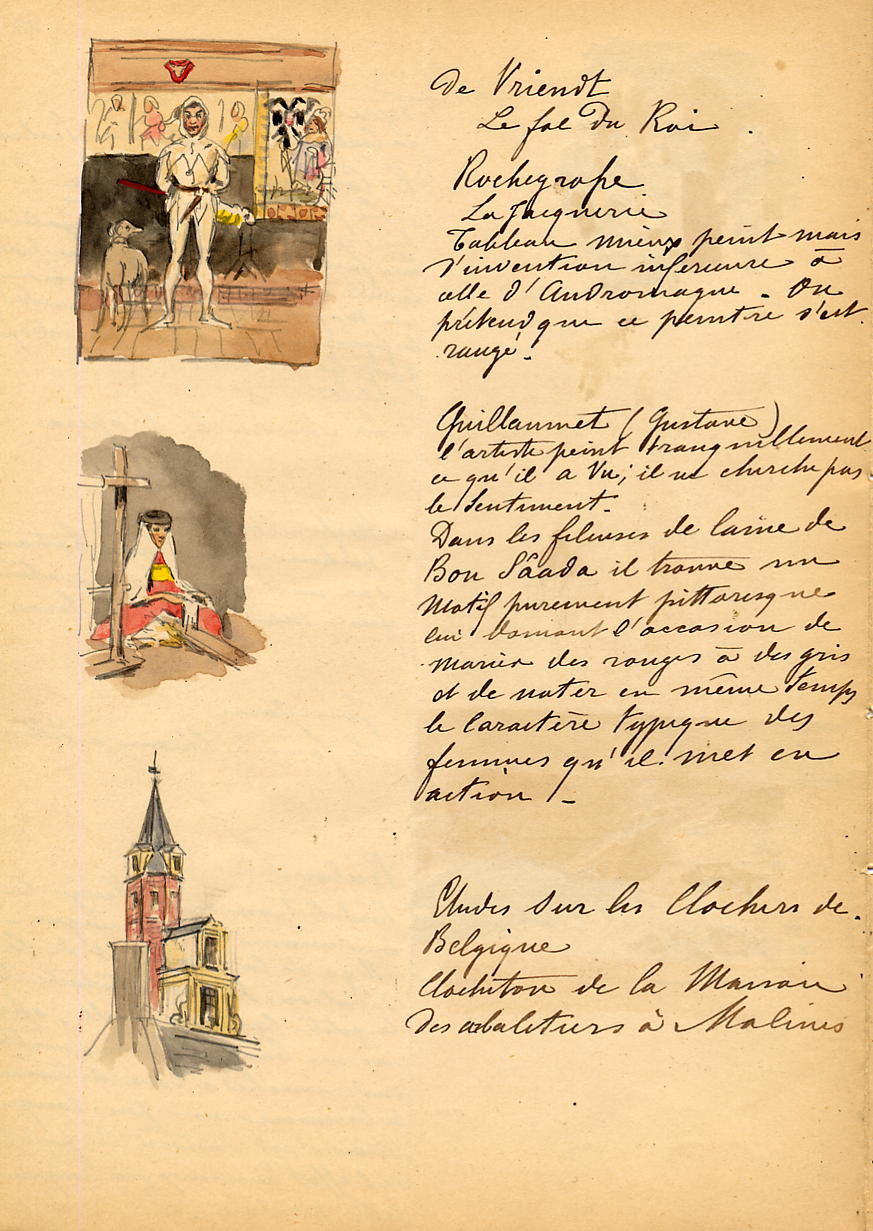 De Vriendt
Le fol du Roi .
Rochegrosse
La Jacquerie
Tableau mieux peint mais
d'invention inferieure à
celle d'Andromaque - On
prétend que ce peintre s'est
rangé.
Guillaumet (Gustave)
l'artiste peint tranquillement
ce qu'il a vu; il ne cherche pas
le sentiment.
Dans les fileuses de laine de
Bou Sâada il trouve un
motif purement pittoresque
lui donnant l'occasion de
marier des rouges à des gris
et de noter en même temps
le caractère typique des
femmes qu'il met en
action -
Etudes sur les Clochers de
Belgique
Clocheton de la Maison
des arbaletiers à Malines